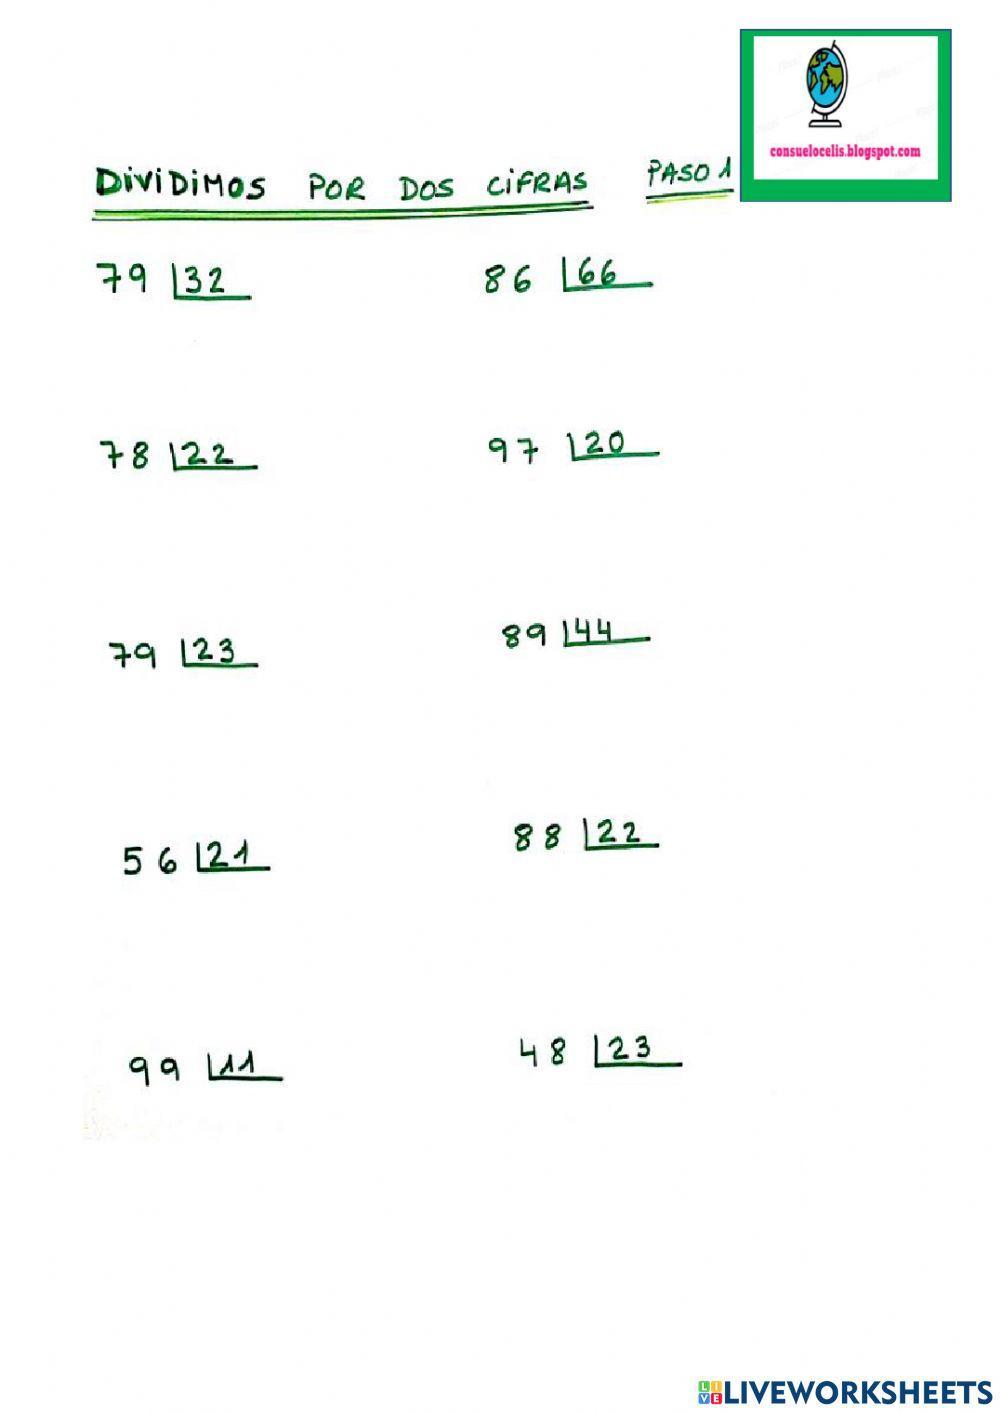 consuelocelis.blogspot.com
DiViDiMOS POR DOS CiFRAS PASO 1
79 32
86 66
78 22
97 20
79 23
89 44
56 21
88 22
99 11
48 23
LIVE LIVEWORKSHEETS